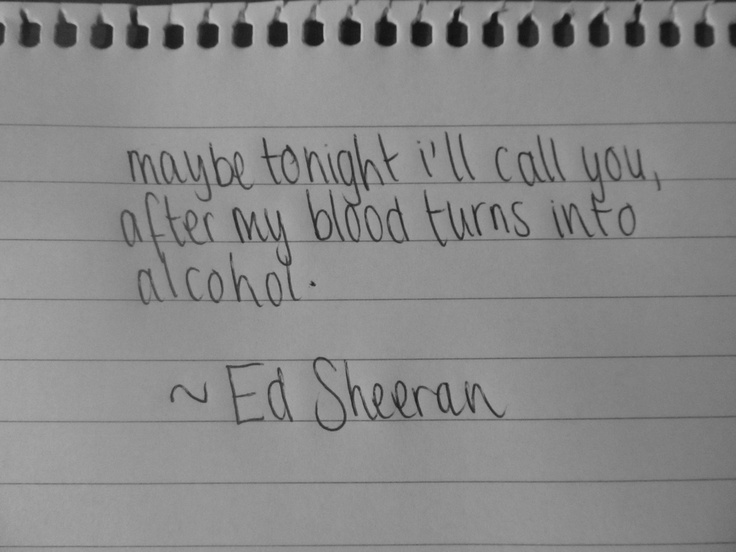 maybe tonight i'll call you,
after my blood turns into
alcohol.
~ Ed Sheeran